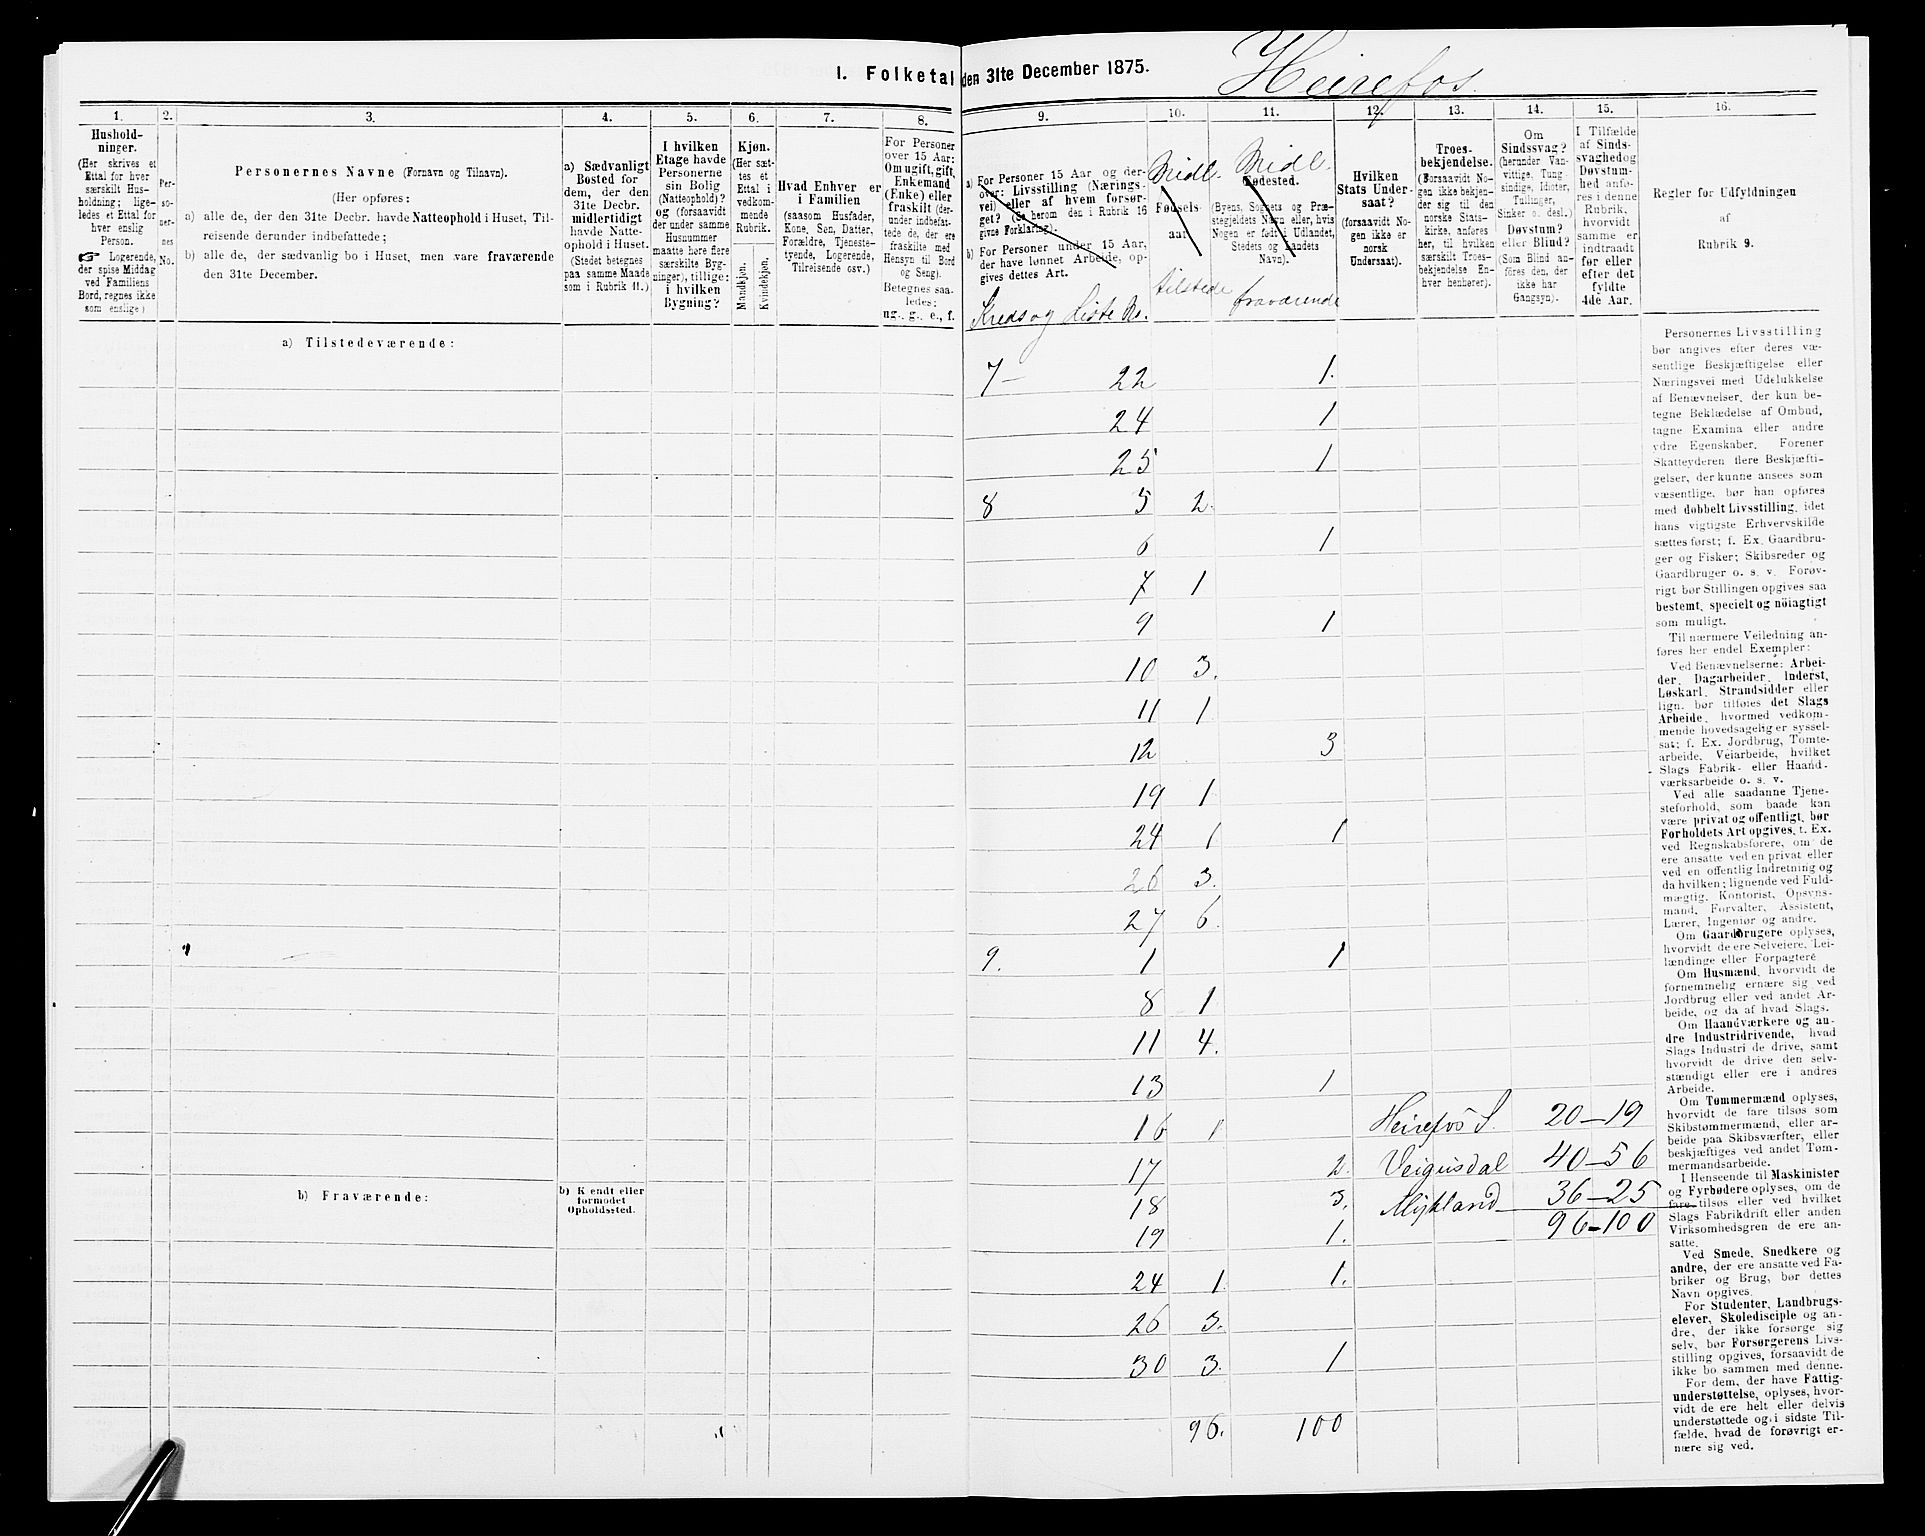 I. Folketal den 31te December 1875.
Heirefos.
1.
Hushold-
ninger.
(Her skrives et
Ettal for hver
særskilt Hus-
holdning; lige-
ledes et Ettal for
hver enslig
Person.
☞ Logerende,
der spise Middag
ved Familiens
Bord, regnes ikke
som enslige)
2.
Per-
so-
ner-
nes
No.
3.
Personernes Navne (Fornavn og Tilnavn).
(Her opføres:
a) alle de, der den 31te Decbr. havde Natteophold i Huset, Til-
reisende derunder indbefattede;
b) alle de, der sædvanlig bo i Huset, men vare fraværende
den 31te December.
4.
a) Sædvanligt
Bosted for
dem, der den
31te Decbr.
midlertidigt
havde Natte-
ophold i Huset.
(Stedet betegnes
paa samme Maade
som i Rubrik 11.)
5.
I hvilken
Etage havde
Personerne
sin Bolig
(Natteophold)?
og (forsaavidt
der under samme
Husnummer
maatte høre flere
særskilte Byg-
ninger), tillige:
i hvilken
Bygning?
6.
Kjøn.
(Her sæt-
tes et
Ettal i
vedkom-
mende
Rubrik.
Mandkjøn.
Kvindekjøn.
7.
Hvad Enhver er
i Familien
(saasom Husfader,
Kone, Søn, Datter,
Forældre, Tjeneste-
tyende, Logerende,
Tilreisende osv.)
8.
For Personer
over 15 Aar:
Om ugift, gift,
Enkemand
(Enke) eller
fraskilt (der-
under indbefat-
tede de, der ere
fraskilte med
Hensyn til Bord
og Seng).
Betegnes saa-
ledes:
ug., g., e., f.
9.
a) For Personer 15 Aar og der-
over: Livsstilling (Nærings-
vei) eller af hvem forsør-
get? (Se herom den i Rubrik 16
givne Forklaring).
b) For Personer under 15 Aar,
der have lønnet Arbeide, op-
gives dettes Art.
Kreds og Liste No.
10.
Midl.
Fødsels-
aar.
tilstede
11.
Midl.
Fødested.
(Byens, Sognets og Præ-
stegjeldets Navn eller, hvis
Nogen er født i Udlandet,
Stedets og Landets
Navn).
fraværende
12.
Hvilken
Stats Under-
saat?
(forsaavidt No-
gen ikke er
norsk
Undersaat).
13.
Troes-
bekjendelse.
(Forsaavidt No-
gen ikke bekjen-
der sig til den
norske Stats-
kirke, anføres
her, til hvilken
særskilt Troes-
bekjendelse En-
hver henhører).
14.
Om
Sindssvag?
(herunder Van-
vittige, Tung-
sindige, Idioter,
Tullinger,
Sinker o. desl.)
Døvstum?
eller Blind?
(Som Blind an-
føres den, der
ikke har
Gangsyn).
15.
I Tilfælde
af Sinds-
svaghed og
Døvstum-
hed anfø-
res i denne
Rubrik,
hvorvidt
samme er
indtraadt
før eller
efter det
fyldte
4de Aar.
16.
Regler for Udfyldningen
af
Rubrik 9.
a) Tilstedeværende:
7— 22 1.
24 1
25 1
8 5 2.
6 1
7 1
9 1
10 3.
11 1
12 3
19 1
24 1 1
26 3.
27 6.
9. 1 1
8 1
11 4.
13 1
16 1 Heirefos S. 20—19
17 2. Veigusdal 40—56
b) Fraværende:
b) Kjendt eller
formodet
Opholdssted.
18 3. Mykland 36—25
19 1. 96—100
24 1. 1.
26 3.
30 3. 1
96. 100
Personernes Livsstilling
bør angives efter deres væ-
sentlige Beskjæftigelse eller
Næringsvei med Udelukkelse
af Benævnelser, der kun be-
tegne Beklædelse af Ombud,
tagne Examina eller andre
ydre Egenskaber. Forener
Skatteyderen flere Beskjæfti-
gelser, der kunne ansees som
væsentlige, bør han opføres
med dobbelt Livsstilling, idet
hans vigtigste Erhvervskilde
sættes først; f. Ex. Gaardbru-
ger og Fisker; Skibsreder og
Gaardbruger o. s. v. Forøv-
rigt bør Stillingen opgives saa
bestemt, specielt og nöiagtigt
som muligt.
Til nærmere Veiledning an-
føres her endel Exempler:
Ved Benævnelserne: Arbei-
der, Dagarbeider, Inderst,
Løskarl, Strandsidder eller
lign. bør tilføies det Slags
Arbeide, hvormed vedkom-
mende hovedsagelig er syssel-
sat; f. Ex. Jordbrug, Tomte-
arbeide, Veiarbeide, hvilket
Slags Fabrik- eller Haand-
værksarbeide o. s. v.
Ved alle saadanne Tjene-
steforhold, som baade kan
være privat og offentligt, bør
Forholdets Art opgives, t. Ex.
ved Regnskabsførere, om de
ere ansatte ved en privat eller
ved en offentlig Indretning og
da hvilken; lignende ved Fuld-
mægtig, Kontorist, Opsyns-
mand, Forvalter, Assistent,
Lærer, Ingeniør og andre.
Om Gaardbrugere oplyses,
hvorvidt de ere Selveiere, Lei-
lændinge eller Forpagtere
Om Husmænd, hvorvidt de
fornemmelig ernære sig ved
Jordbrug eller ved andet Ar-
beide, og da af hvad Slags.
Om Haandværkere og an-
dre Industridrivende, hvad
Slags Industri de drive, samt
hvorvidt de drive den selv-
stændigt eller ere i andres
Arbeide.
Om Tømmermænd oplyses,
hvorvidt de fare tilsøs som
Skibstømmermænd, eller ar-
beide paa Skibsværfter, eller
beskjæftiges ved andet Tøm-
mermandsarbeide.
I Henseende til Maskinister
og Fyrbødere oplyses, om de
fare tilsøs eller ved hvilket
Slags Fabrikdrift eller anden
Virksomhedsgren de ere an-
satte.
Ved Smede, Snedkere og
andre, der ere ansatte ved Fa-
briker og Brug, bør dettes
Navn opgives.
For Studenter, Landbrugs-
elever, Skoledisciple og an-
dre, der ikke forsørge sig
selv, bør Forsørgerens Livs-
stilling opgives, forsaavidt de
ikke bo sammen med denne.
For dem, der have Fattig-
understøttelse, oplyses, hvor-
vidt de ere helt eller delvis
understøttede og i sidste Til-
fælde, hvad de forøvrigt er-
nære sig ved.